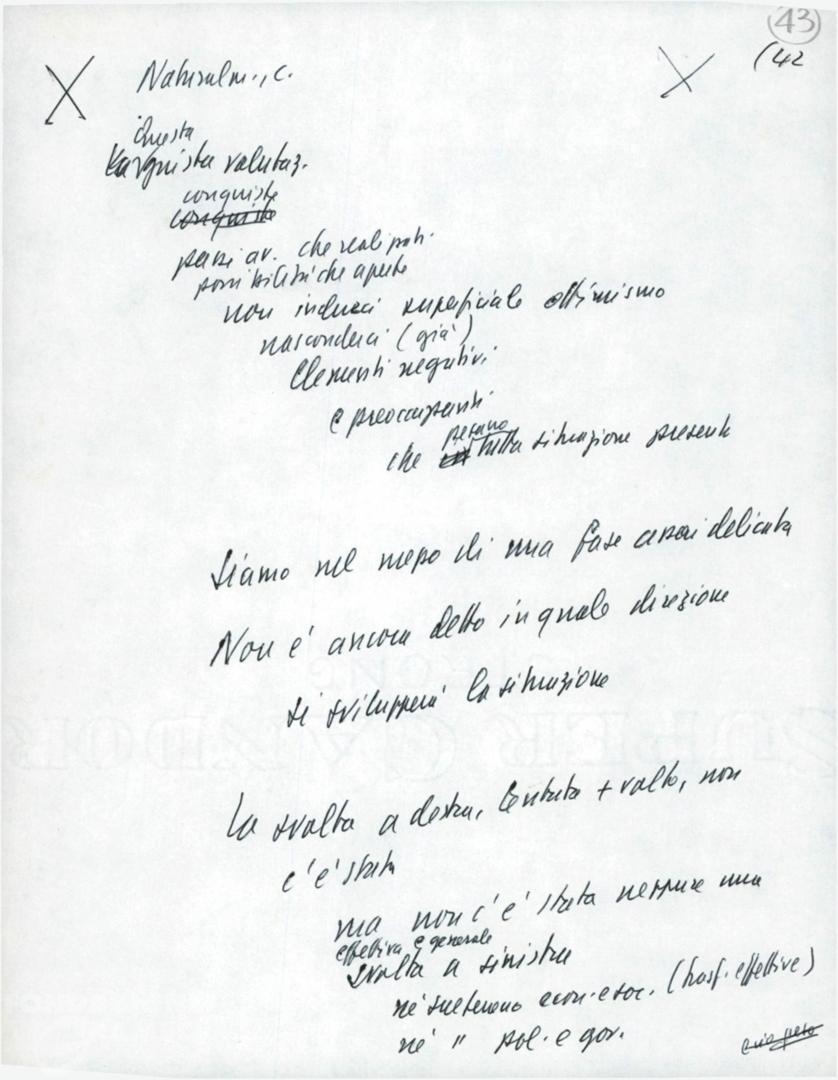 43
(42
Naturalm., c.
Questa
valutaz.
conquiste
conquiste
passi av. che realizzati
possibilità che aperte
non induca superficiale ottimismo
nasconderci (già)
Elementi negativi
e preoccupanti
pesano
che tutta situazione presente
Siamo nel mezzo di una fase assai delicata
Non è ancora detto in quale direzione
si svilupperà la situazione
La svolta a destra, tentata + volte, non
c'è stata
ma non c'è stata neppure una
effettiva e generale
svolta a sinistra
né sul terreno econ. e soc. (trasf. effettive)
né " pol. e gov.